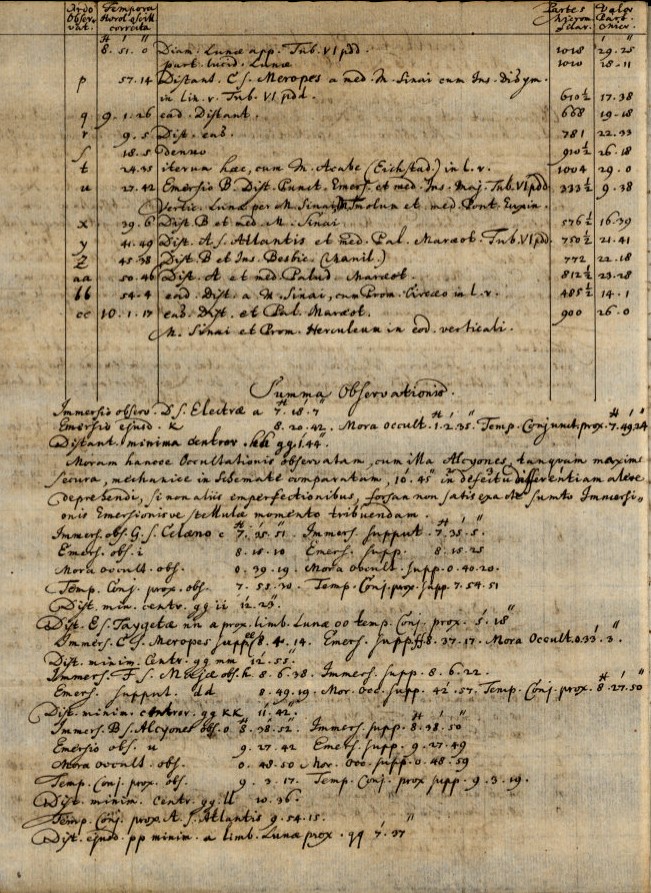 Ordo Observat. Tempora Horol. oscill. correcta Partes Microm. Valor Part. Micr.
H ' " ' "
8. 51. 0 Diam. Lunæ app. Tub. VI pdd 1018 29.25
part. lucid. Lunæ 1010
p 57.14 Distant. C s. Meropes a med. M. Sinai cum Ins.
in lin. v. Tub. VI pdd. 610½ 17.38
q 9.1.26 ead. Distant. 668 19.18
r 9.5 Dist. ead. 781 22.33
s 18.5 denuo 910½ 26.18
t 24.35 iterum hæc, cum M. Acabe (Eichstad.) in l. r. 1004 29.0
u 27.42 Emersio B. Dist. Punct. Emers. et med. Ins. Maj. Tub. VI pdd 333½ 9.38
Vertic. Lunæ per M. Sinai, M. Tmolum et med. Pont. Euxin.
x 39.6 Dist. B et med. M. Sinai 576½ 16.39
y 41.49 Dist. A s. Atlantis et med. Pal. Maræot. Tub. VI pdd. 750½ 21.41
z 45.38 Dist. B et Ins. Besbic. 772 22.18
aa 50.46 Dist. A et med. Palud. Maræot. 812½ 23.28
bb 54.4 ead. Dist. a M. Sinai, cum Prom. Circæo in l. r. 485½ 14.1
cc 10.1.17 ead. Dist. et Pal. Maræot. 900 26.0
M. Sinai et Prom. Herculeum in eod. verticali.
Summa Observationis.
Immersio observ. D s. Electræ a 7.18.7
Emersio ejusd. k 8.20.42. Mora occult. 1.2.35. Temp. Conjunct. prox. 7.49.24
Distant. minima centror. gg 1.44.
Moram hancce Occultationis observatam, cum illa Alcyones, tanquam maxime
secura, mechanice in Schemate comparatam, 10.45" in defectu differentiam
deprehendi, si non aliis imperfectionibus, forsan non satis exacte sumto Immersi-
onis Emersionisve stellulæ momento tribuendam.
Immers. obs. G s. Celæno c 7.35.51. Immers. supput. 7.35.5.
Emers. obs. i 8.15.10 Emers. supp. 8.15.25
Mora occult. obs. 0.39.19. Mora occult. supp. 0.40.20.
Temp. Conj. prox. obs. 7.55.30. Temp. Conj. prox. supp. 7.54.51
Dist. min. centr. gg ii 12.23".
Dist. E s. Taygetæ nn a prox. limb. Lunæ oo temp. Conj. prox. 5.18"
Immers. C s. Meropes supp. 8.4.14. Emers. supp. 8.37.17. Mora Occult. 0.33.3.
Dist. minim. Centr. gg mm 12.55."
Immers. F s. Majæ obs. h 8.6.38. Immers. supp. 8.6.22.
Emers. supput. dd 8.49.19. Mor. occ. supp. 42.57. Temp. Conj. prox. 8.27.50
Dist. minim. centror. gg kk 11.42".
Immers. B s. Alcyones obs. o 8.38.52. Immers. supp. 8.38.50"
Emersio obs. u 9.27.42 Emers. supp. 9.27.49
Mora occult. obs. 0.48.50 Mor. occ. supp. 0.48.59
Temp. Conj. prox. obs. 9.3.17. Temp. Conj. prox supp. 9.3.19.
Dist. minim. centr. gg ll 10.36.
Temp. Conj. prox. A s. Atlantis 9.54.15.
Dist. ejusd. pp minim. a limb. Lunæ prox. qq 7.37